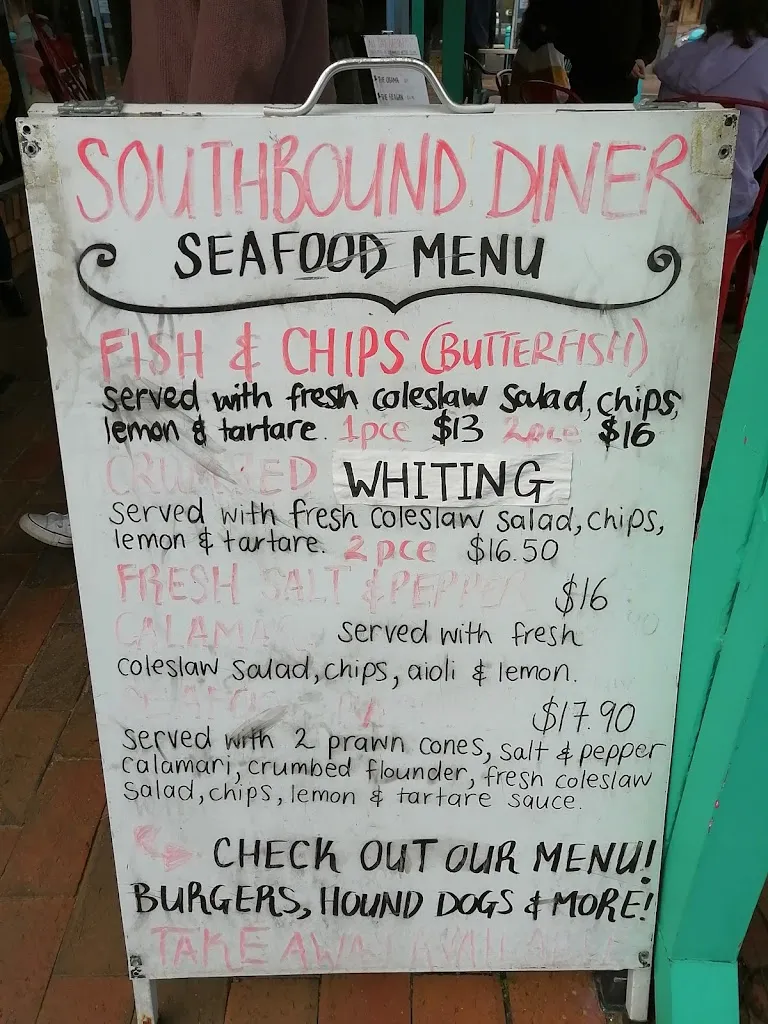 SOUTHBOUND DINER
SEAFOOD MENU
FISH & CHIPS (BUTTERFISH)
served with fresh coleslaw salad, chips,
lemon & tartare. 1pce $13 2pce $16
CRUMBED WHITING
served with fresh coleslaw salad, chips,
lemon & tartare. 2 pce $16.50
FRESH SALT & PEPPER $16
CALAMA served with fresh
coleslaw salad, chips, aioli & lemon.
$17.90
served with 2 prawn cones, salt & pepper
calamari, crumbed flounder, fresh coleslaw
salad, chips, lemon & tartare sauce.
CHECK OUT OUR MENU!
BURGERS, HOUND DOGS & MORE!
TAKE AWAY AVAILABLE